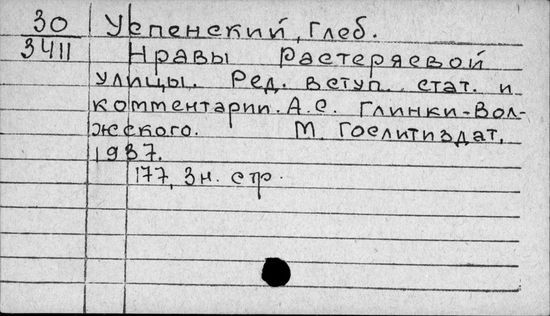 30
3411
Успенский, Глеб.
Нравы Растеряевой
улицы. Ред. вступ. стат. и
комментарии. А.С. Глинки-Вол-
жского. М. Гослитиздат,
1937.
177, 3н. стр.